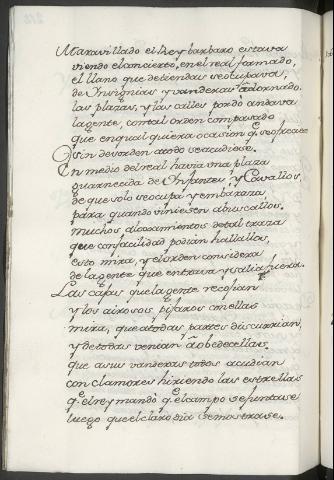 Maravillado el Rey barbaro estava
viendo el concierto, en el real formado,
el llano que de tiendas se ocupava,
de Insignias y vanderas adornado.
las plazas, y las calles por do andava
la gente, con tal orden compasado
que en qualquiera ocasion q̃ se ofreciese
sin desorden a todo se acudiese.
En medio del real havia una plaza
guarnecida de Infantes, y Cavallos,
de que solo se ocupa y embaraza
para quando viniesen a buscallos.
muchos alojamientos de tal traza
que con facilidad podian hallallos,
esto mira, y el orden considera
de la gente que entrava y salia fuera.
Las cajas que la gente recojian
y los airosos pifaros con ellas
mira, que a todas partes discurrian,
y de todas venian a obedecellas
que a sus vanderas todos acudian
con clamores hiriendo las estrellas
q̃ el rey mandó q̃ el campo se juntase
luego que el claro dia se mostrase.